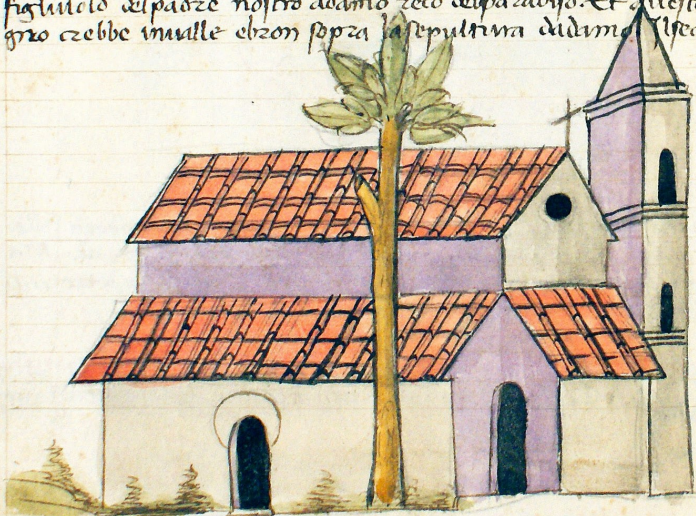 figluiolo delpadre nostro adamo reco delparadiso. Et quest
gno crebbe invalle ebron sopra lasepultura dadamo